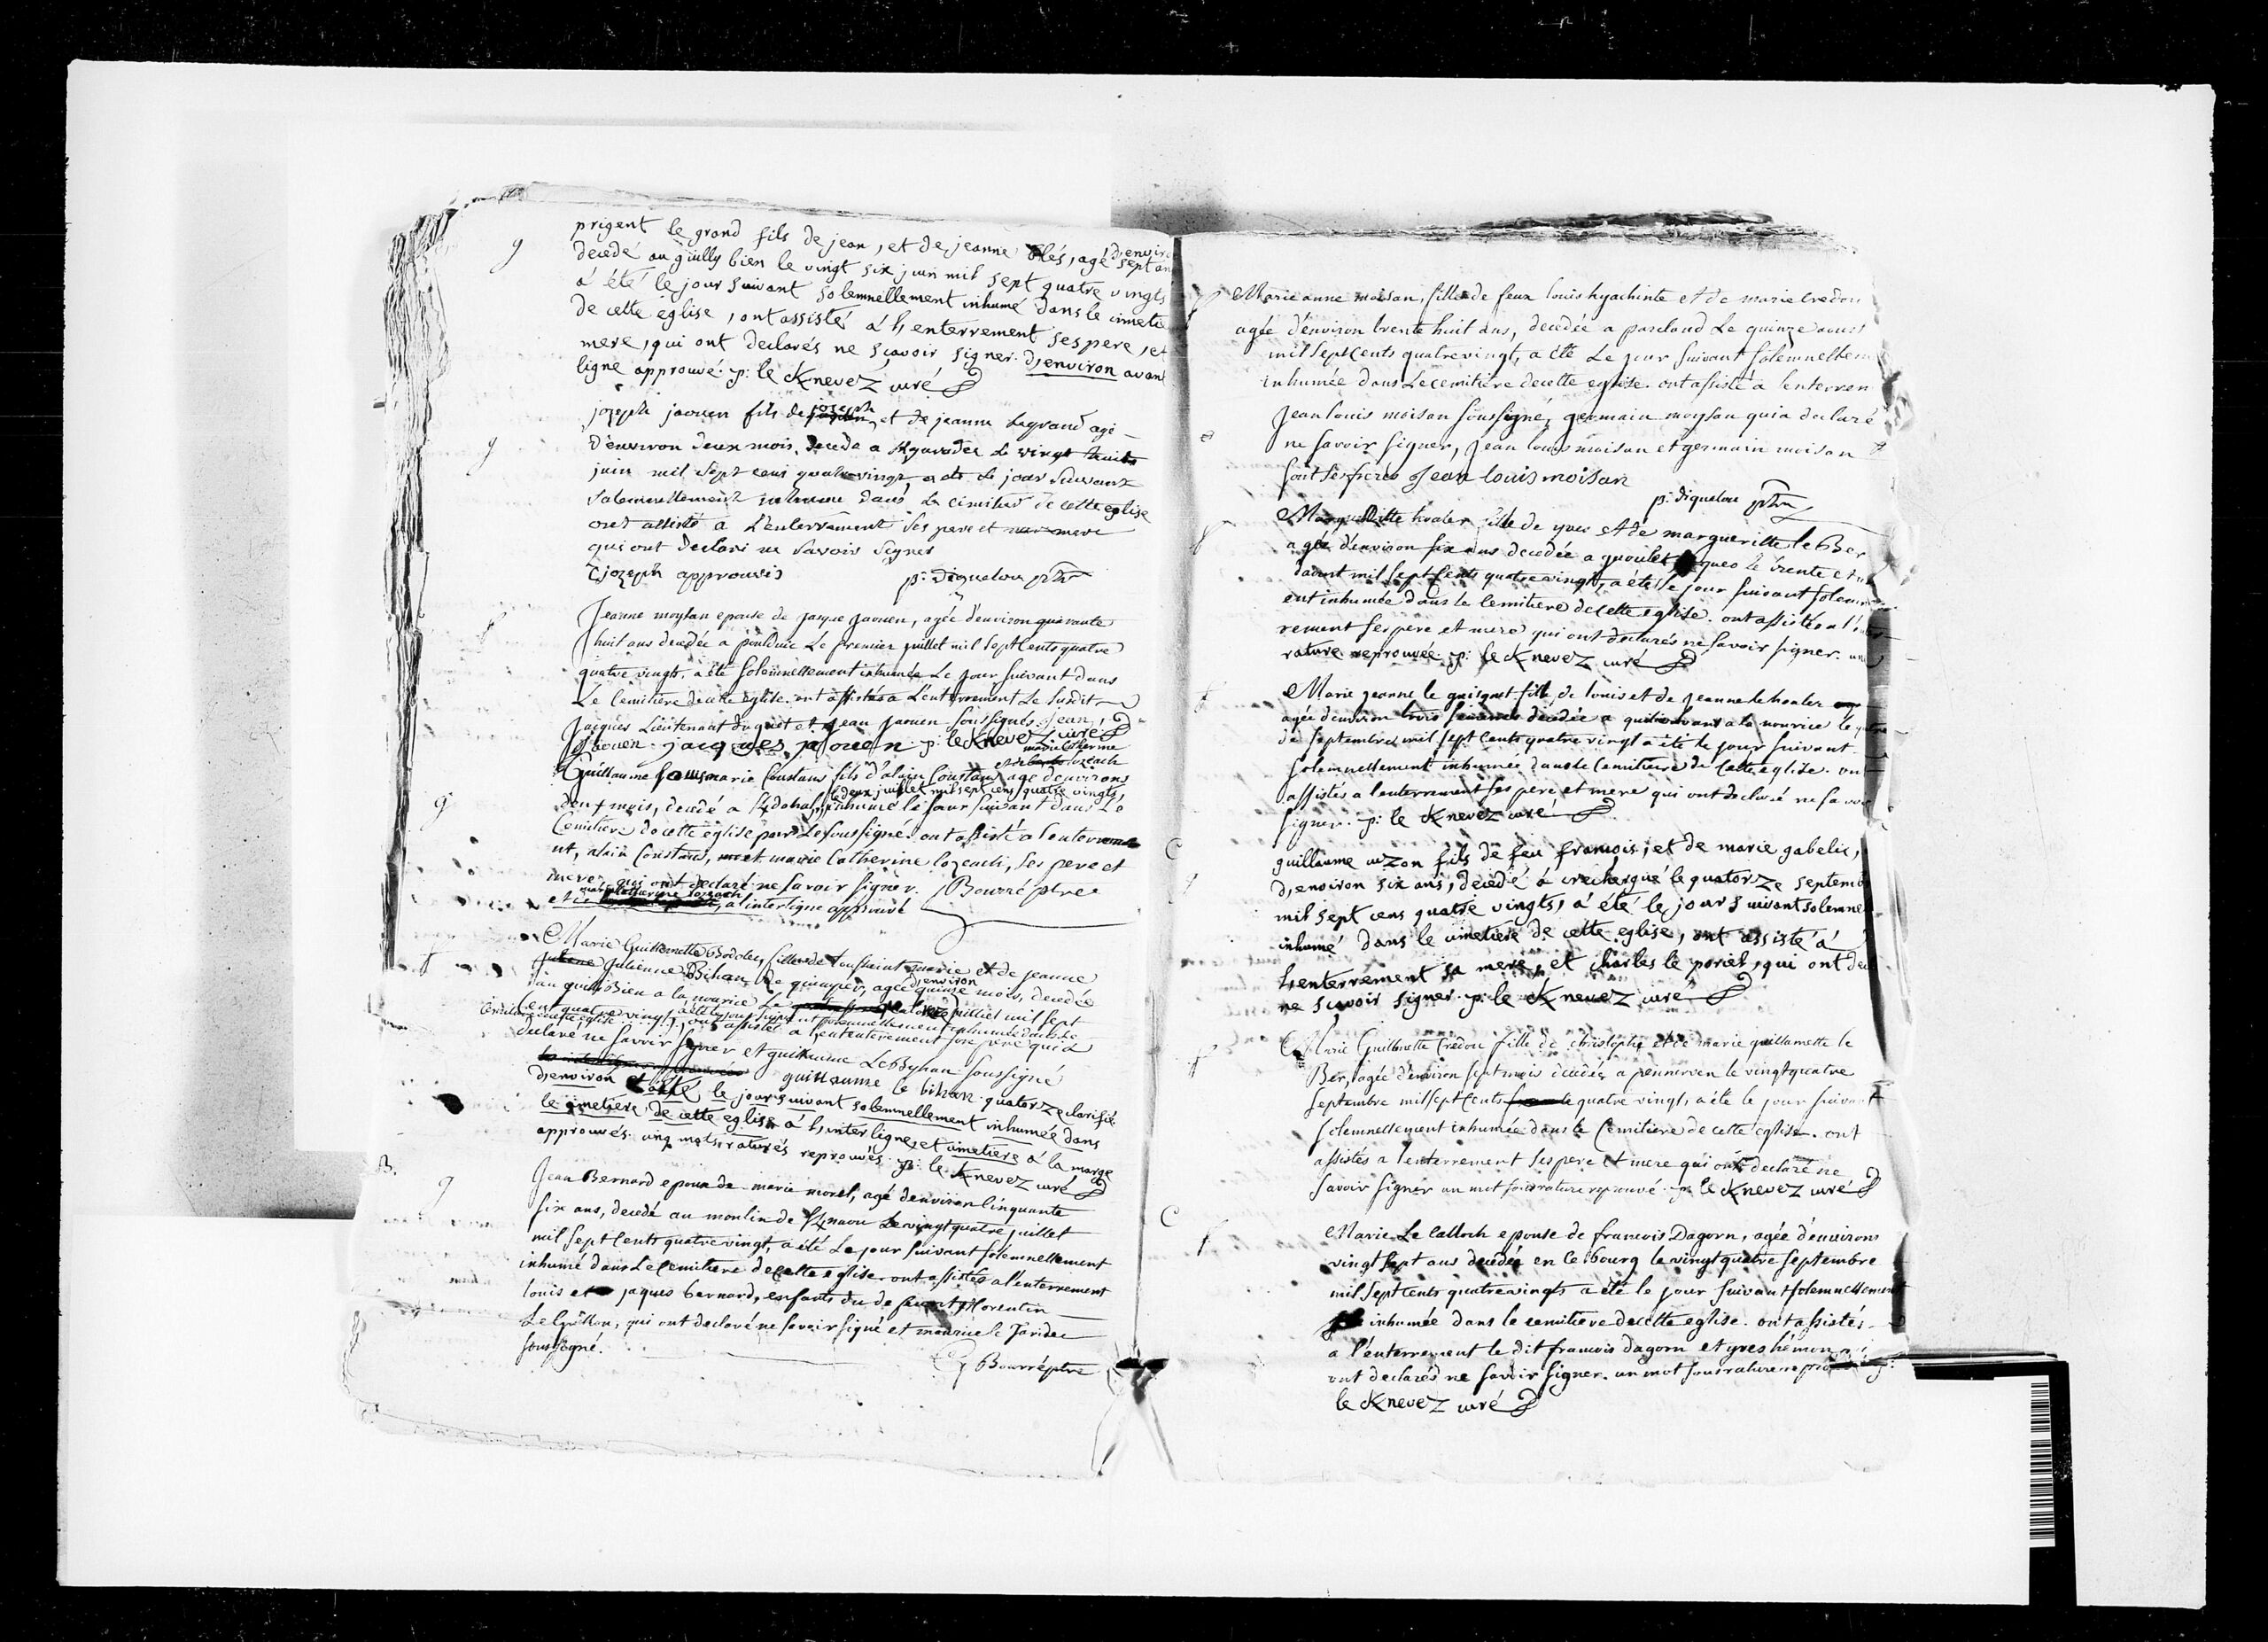 g
prigent le grand fils de jean, et de jeanne Blés, agé d,enviro
decedé au guilly bien le vingt six juin mil sept quatre vingts
à été le jour suivant solemnellement inhumé dans le cimetie
de cette eglise, ont assisté à l,enterrement ses pere, et
mere, qui ont declarés ne sçavoir signer. d,environ avant
ligne approuvé. p: le Knevez curé
g
jozeph jaouen fils de jozeph et de jeanne Legrand agé
d'environ deux mois, decede a le vingt huit
juin mil sept cens quatre vingt, a ete le jour suivant
solemnellement inhume dans le cimitier de cette eglise
ont assisté a L'enterrement ses pere et mere
qui ont declaré ne savoir signer
jozeph approuvés p: diquelou ptre
f
Jeanne moysan epouse de jaque jaouen, agée d'environ quarante
huit ans decedée a poulduic Le premier juillet mil sept Cents quatre
quatre vingts, a été solemnellement inhumée Le jour suivant dans
Le Cemitiere de cette eglise. ont assistés a L'enterrement Le susdit
jacques Lieutenant du guet et jean jaouen soussignés. jean
jaouen. jacques jaouen. p: le Knevez curé
marie Catherine
lozeach
Guillaume marie Constans fils d'alain Constans agé d'environs
le deux juillet mil sept cens quatre vingts,
deux mois, decedé a inhumé le jour suivant dans Le
g
Cemitiere de cette eglise par Le soussigné. ont assisté a l'enterreme
nt, alain Constans, et marie Catherine lozeach, ses pere et
mere qui ont declaré ne savoir signer. Bourré ptre
marie Catherine lozeach
a l'interligne approuvé
f
Marie Guillemette Bodolec, fille de toussaint marie et de jeanne
julienne Bihan, de quimper, agée d,environ quinze mois, decedée
au quilly Bien a la nourice Le quatorze juillet mil sept
Cent quatre vingt, a été le jour suivant solemnellement inhumée dans le
cemitiere de cette eglise. ont assistés a l'enterrement son pere qui a
declaré ne savoir signer et guillaume Le Byhan soussigné
guillaume le bihan. quatorze clarifié
d,environ et a été le jour suivant solemnellement inhumée dans
le cimetiere de cette eglise à l,interligne, et cimetiere à la marge
approuvés. cinq mots raturés reprouvés. p: le Knevez curé
B.
g
Jean Bernard epoux de marie morel, agé d'environ Cinquante
six ans, decedé au moulin de Le vingt quatre juillet
mil sept Cents quatre vingt, a été Le jour suivant solemnellement
inhumé dans Le Cemitiere de cette eglise. ont assistés a l'enterrement
louis et jaques bernard, enfants du defunt, florentin
Le Goillon, qui ont declaré ne savoir signé et maurice le Taridec
soussigné.
Bourré ptre
f
Marie anne moisan, fille de feux louis hyachinte et de marie Credou
agée d'environ trente huit ans, decedée a le quinze aoust
mil sept Cents quatre vingt, a été Le jour suivant solemnellem
inhumée dans Le cemitiere de cette eglise. ont assisté a l'enterrem
Jean louis moisan soussigné, germain moysan qui a declaré
ne savoir signer, jean louis moisan et germain moisan
sont ses freres Jean louis moisan
p: diquelou ptre
f
Margueritte hoaler fille de yves et de margueritte le Ber
agée d'environ six ans decedée a le trente et un
d'aoust mil sept Cents quatre vingts, a été le jour suivant solemnellem
ent inhumée dans le Cemitiere de cette eglise. ont assistés a l'enter
rement ses pere et mere qui ont declarés ne savoir signer. une
rature reprouvée. p: le Knevez curé
f
Marie jeanne le guisquet fille de louis et de jeanne le hoaler
agée d'environ trois semaines decedée a a la nourice le quatre
de septembre mil sept Cents quatre vingt a été le jour suivant
solemnellement inhumée dans le Cemitiere de Cette eglise. ont
assistés a l'enterrement ses pere et mere qui ont declaré ne savoir
signer. p: le Knevez curé
C
g
guillaume cuzon fils de feu francois, et de marie gabelic,
d,environ six ans, decedé à crec'hergue le quatorze septemb
mil sept cens quatre vingts, à été le jour suivant solemnell
inhumé dans le cimetiere de cette eglise, ont assisté à
l,enterrement sa mere, et charles le poriel, qui ont dec
ne sçavoir signer. p: le Knevez curé
f
Marie Guillemette Credou fille de christophe et de marie guillamette le
Ber, agée d'environ sept mois decedée a pennerven le vingt quatre
septembre mil sept Cents quatre vingt, a été le jour suivant
solemnellement inhumée dans le Cemitiere de cette eglise. ont
assistés a l'enterrement ses pere et mere qui ont declaré ne
savoir signer un mot sous rature reprouvé. p: le Knevez curé
C
f
Marie Le Calloch epouse de francois Dagorn, agée d'environs
vingt sept ans decedée en ce bourg le vingt quatre septembre
mil sept cents quatre vingts a été le jour suivant solemnellement
inhumée dans le cemitiere de cette eglise. ont assistés
a l'enterrement le dit francois dagorn et yves hémon qui
ont declarés ne savoir signer. un mot sous rature reprouvé p:
le Knevez curé